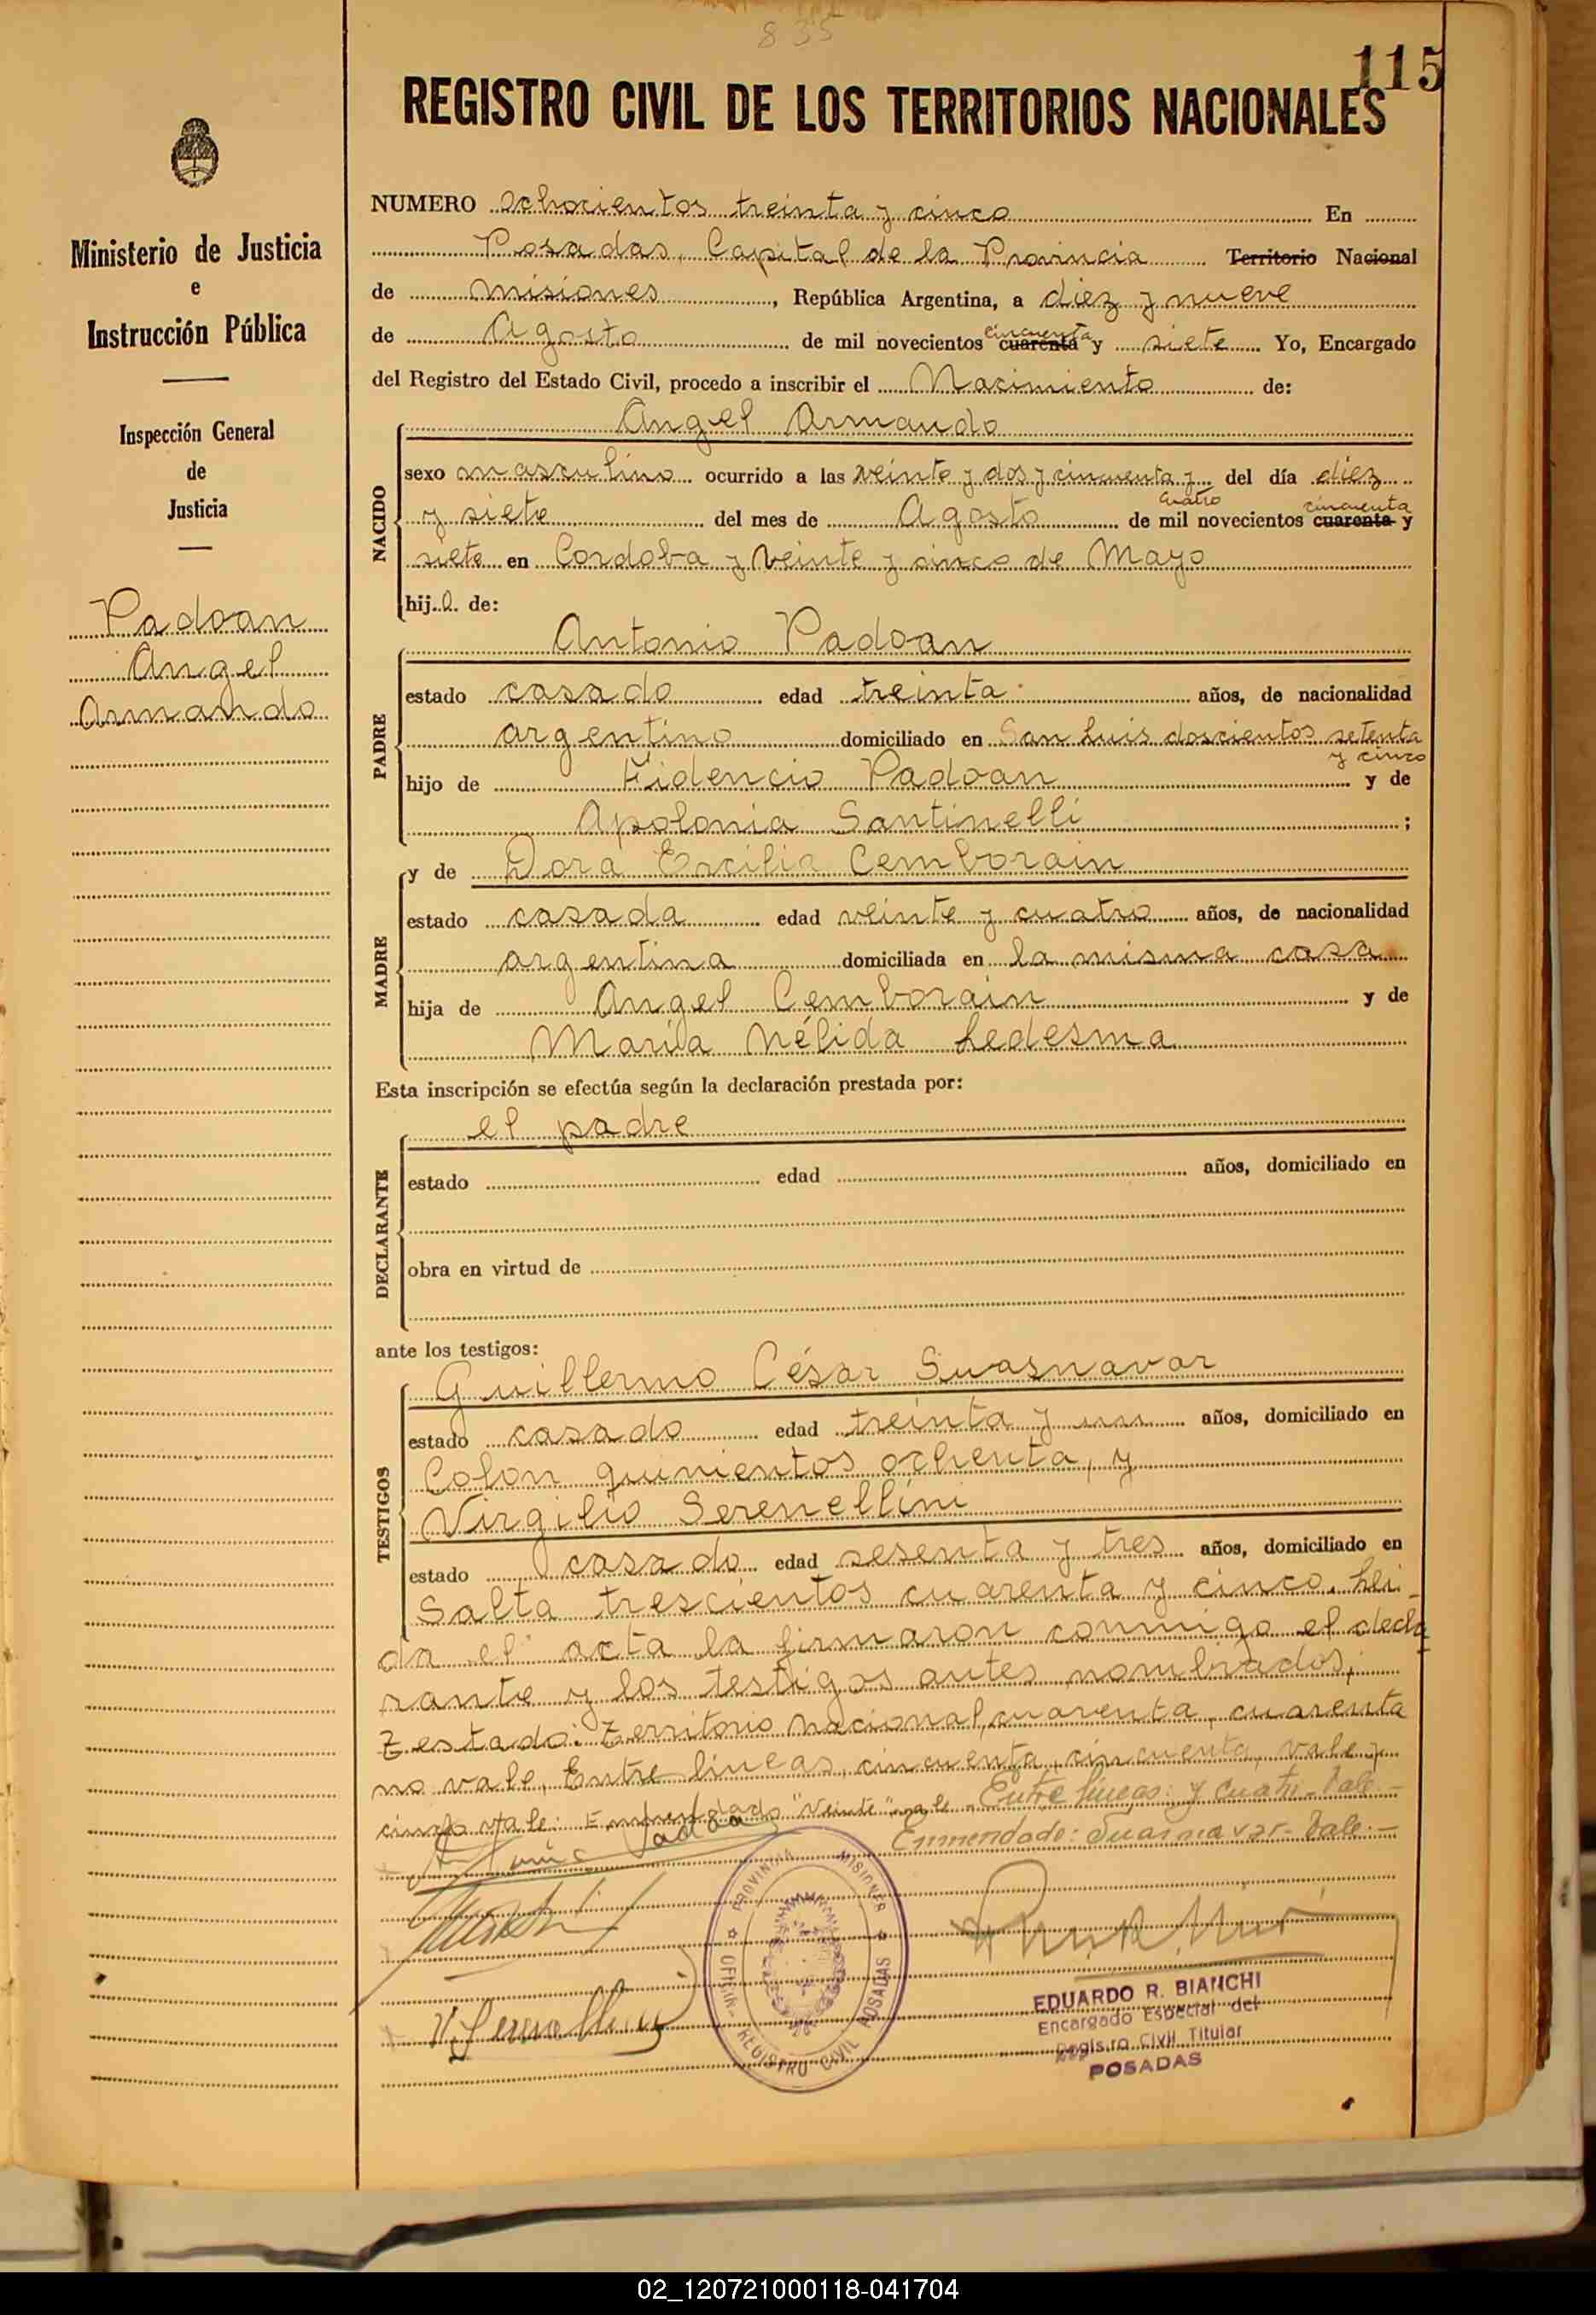 835
115
REGISTRO CIVIL DE LOS TERRITORIOS NACIONALES
Ministerio de Justicia
e
Instrucción Pública
Inspección General
de
Justicia
Padoan
Angel
Armando
NUMERO ochocientos treinta y cinco En
Posadas, Capital de la Provincia Territorio Nacional
de Misiones, República Argentina, a diez y nueve
cincuenta
de Agosto de mil novecientos cuarenta y siete Yo, Encargado
del Registro del Estado Civil, procedo a inscribir el Nacimiento de:
NACIDO
Angel Armando
sexo masculino ocurrido a las veinte y dos y cincuenta y del día diez
cuatro cincuenta
y siete del mes de Agosto de mil novecientos cuarenta y
siete en Cordoba y veinte y cinco de Mayo
hij o de:
PADRE
Antonio Padoan
estado casado edad treinta años, de nacionalidad
argentino domiciliado en San Luis doscientos setenta
y cinco
hijo de Fidencio Padoan y de
Apolonia Santinelli ;
MADRE
y de Dora Ercilia Cemborain
estado casada edad veinte y cuatro años, de nacionalidad
argentina domiciliada en la misma casa
hija de Angel Cemborain y de
Maria Nélida Ledesma
Esta inscripción se efectúa según la declaración prestada por:
DECLARANTE
el padre
estado edad años, domiciliado en
obra en virtud de
ante los testigos:
TESTIGOS
Guillermo César Suasnavar
estado casado edad treinta y un años, domiciliado en
Colon quinientos ochenta, y
Virgilio Serenellini
estado casado edad sesenta y tres años, domiciliado en
Salta trescientos cuarenta y cinco. Leí-
da el acta la firmaron conmigo el decla
rante y los testigos antes nombrados,
Testado: Territorio Nacional, cuarenta, cuarenta
no vale, Entre lineas, cincuenta, cincuenta, vale y
cinco vale: Enmendado "veinte" vale. Entre lineas: y cuatro. Vale.-
Enmendado: Suasnavar- Vale.-
PROVINCIA MISIONES
OFICINA REGISTRO CIVIL POSADAS
EDUARDO R. BIANCHI
Encargado Especial del
Registro Civil Titular
POSADAS
02_120721000118-041704